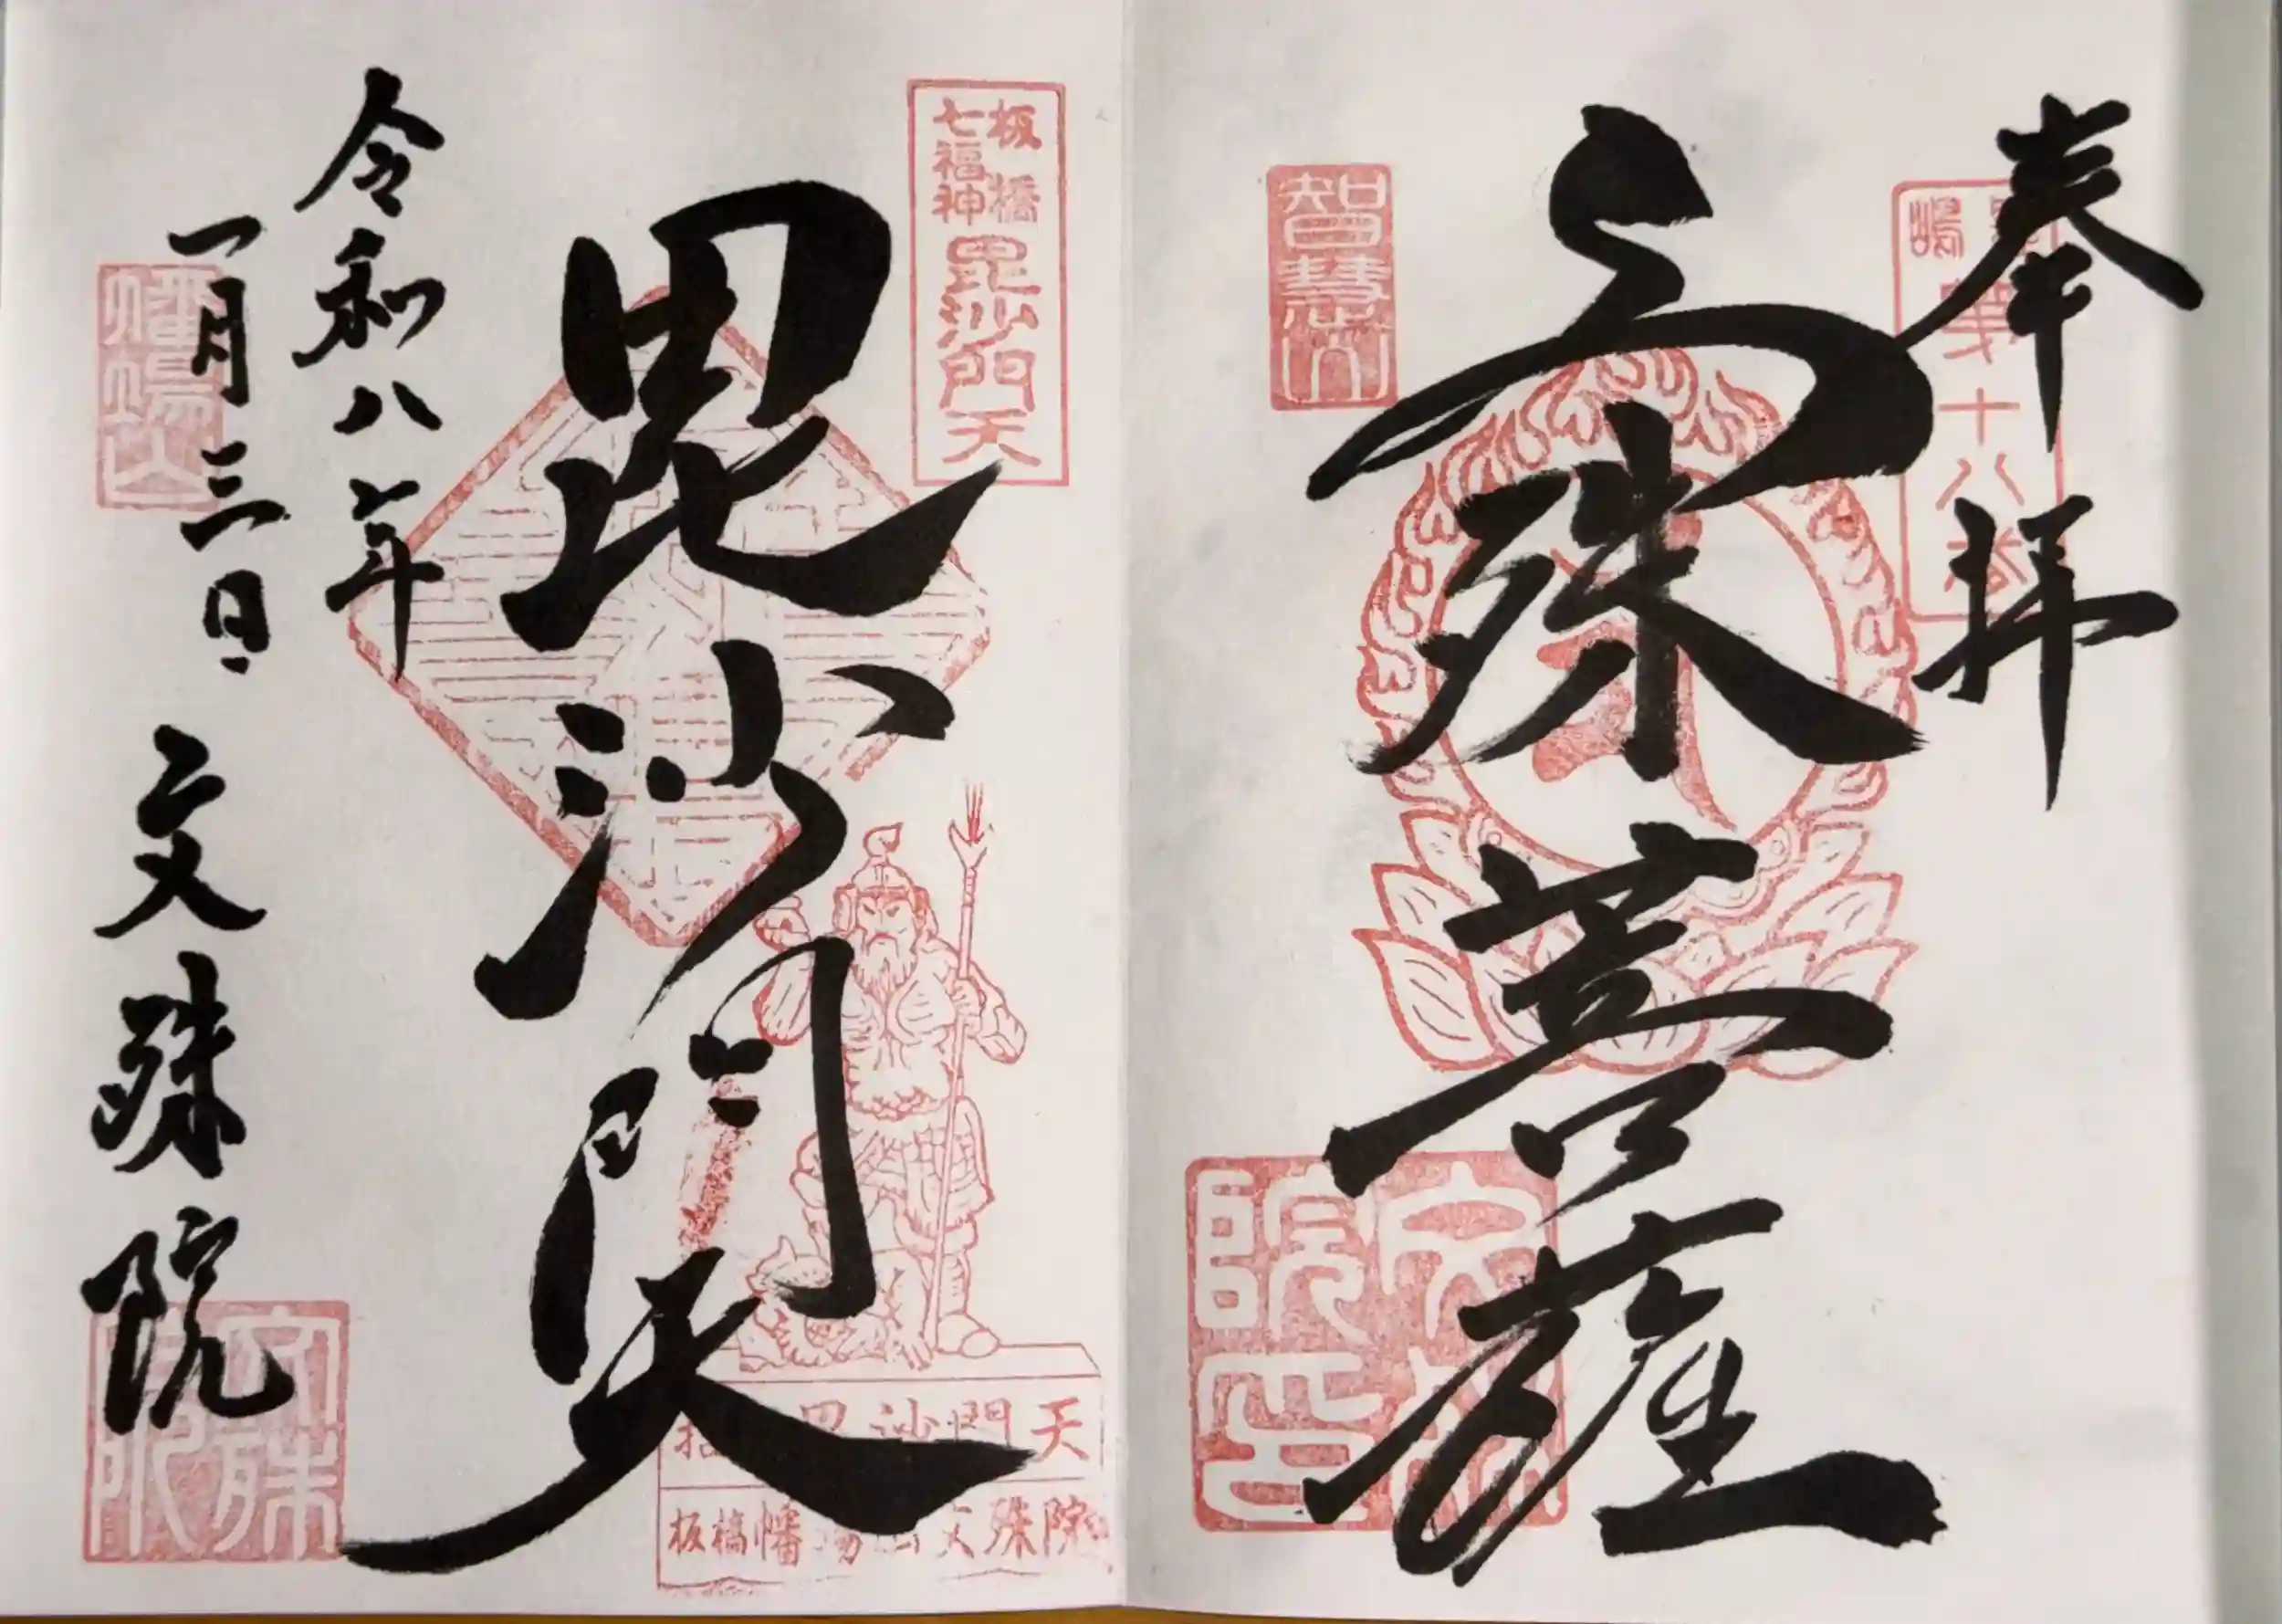 奉拝
文殊菩薩
智慧山
第十八番
文殊院印
板橋
七福神
毘沙門天
毘沙門天
毘沙門天
板橋幡場山文殊院
令和八年
一月三日
文殊院
幡場山
文殊院